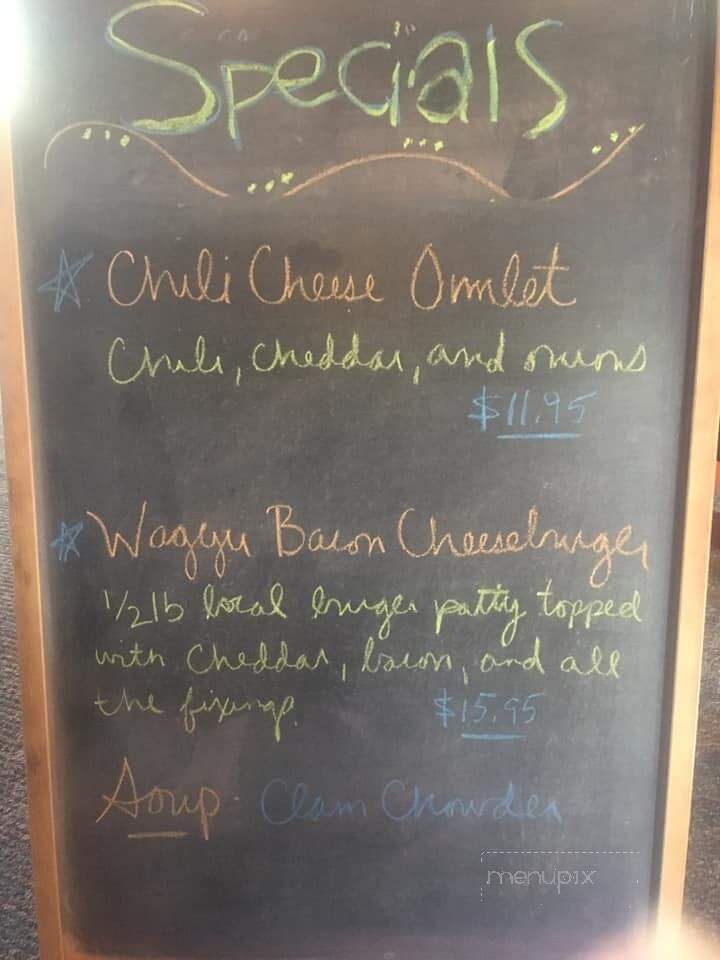 Specials
Chili Cheese Omlet
Chili, cheddar, and onions
$11.95
Wagyu Bacon Cheeseburger
1/2 lb local burger patty topped
with cheddar, bacon, and all
the fixings.
$15.95
Soup - Clam Chowder
menupix